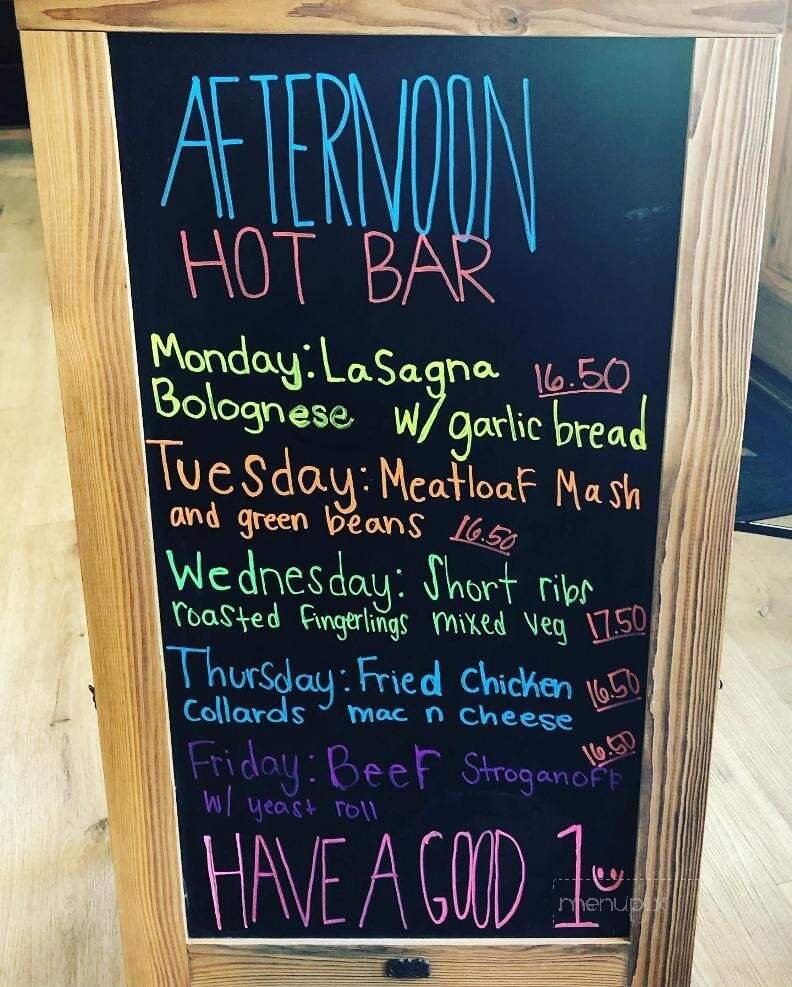 AFTERNOON
HOT BAR
Monday: Lasagna 16.50
Bolognese w/ garlic bread
Tuesday: Meatloaf Mash
and green beans 16.50
Wednesday: Short ribs
roasted Fingerlings mixed veg 17.50
Thursday: Fried Chicken 16.50
Collards mac n cheese
Friday: Beef Stroganoff 16.50
w/ yeast roll
HAVE A GOOD 1
menupix